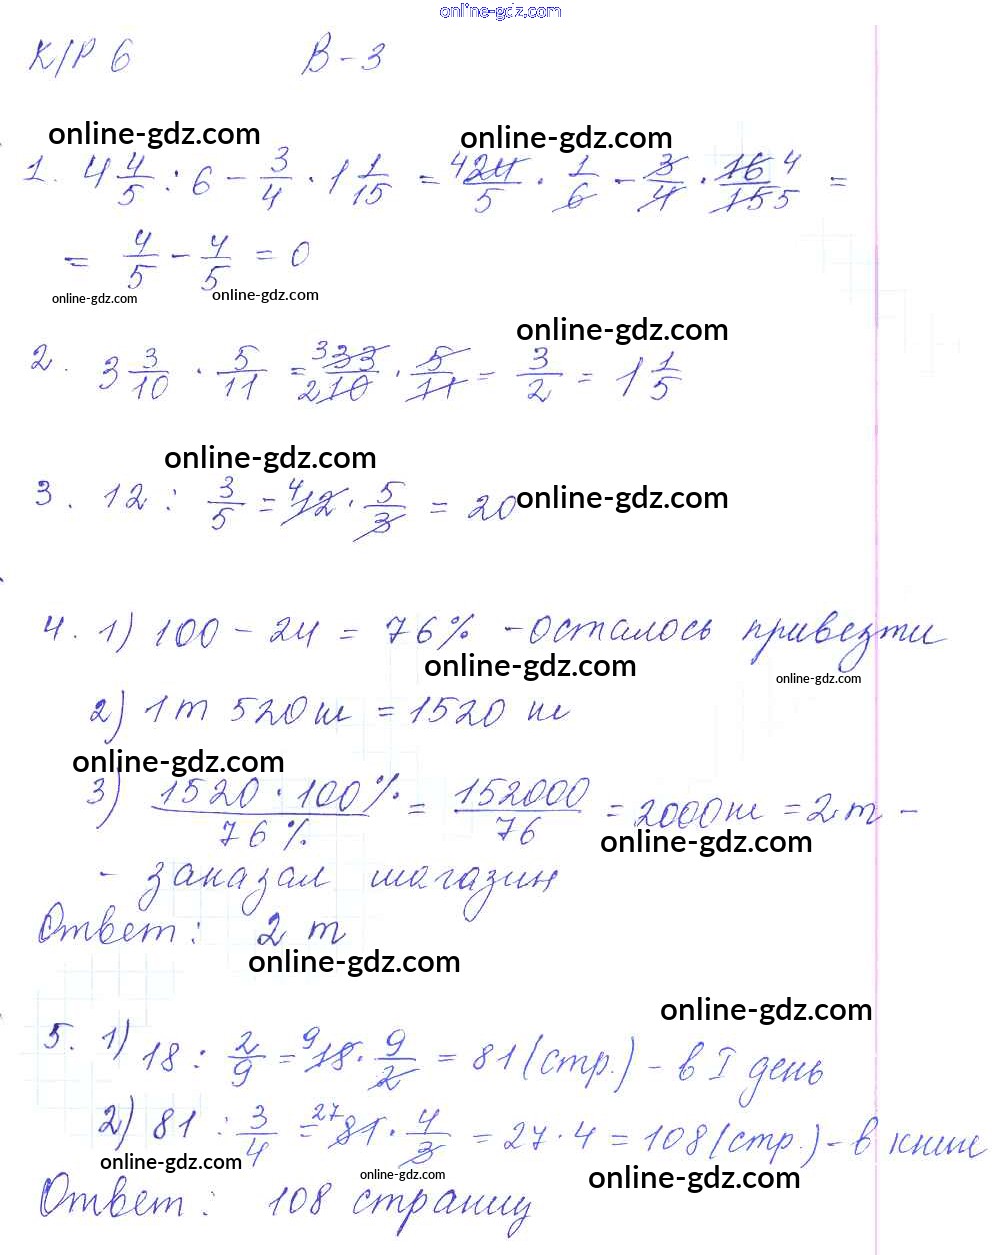 online-gdz.com
К/Р 6 В-3
online-gdz.com online-gdz.com
1. 4 4/5 : 6 - 3/4 · 1 1/15 = 4 24/5 · 1/6 - 3/4 · 16/15 4 5 =
= 4/5 - 4/5 = 0
online-gdz.com online-gdz.com
online-gdz.com
2. 3 3/10 · 5/11 = 3 33/2 10 · 5/11 = 3/2 = 1 1/5
online-gdz.com
3. 12 : 3/5 = 4 12 · 5/3 = 20 online-gdz.com
4. 1) 100 - 24 = 76% - осталось привезти
online-gdz.com online-gdz.com
2) 1 т 520 кг = 1520 кг
online-gdz.com
3) 1520 · 100%/76% = 152000/76 = 2000 кг = 2 т -
online-gdz.com
- заказал магазин
Ответ: 2 т
online-gdz.com
online-gdz.com
5. 1) 18 : 2/9 = 9 18 · 9/2 = 81 (стр.) - в I день
2) 81 : 3/4 = 27 81 · 4/3 = 27 · 4 = 108 (стр.) - в книге
online-gdz.com online-gdz.com online-gdz.com
Ответ: 108 страниц